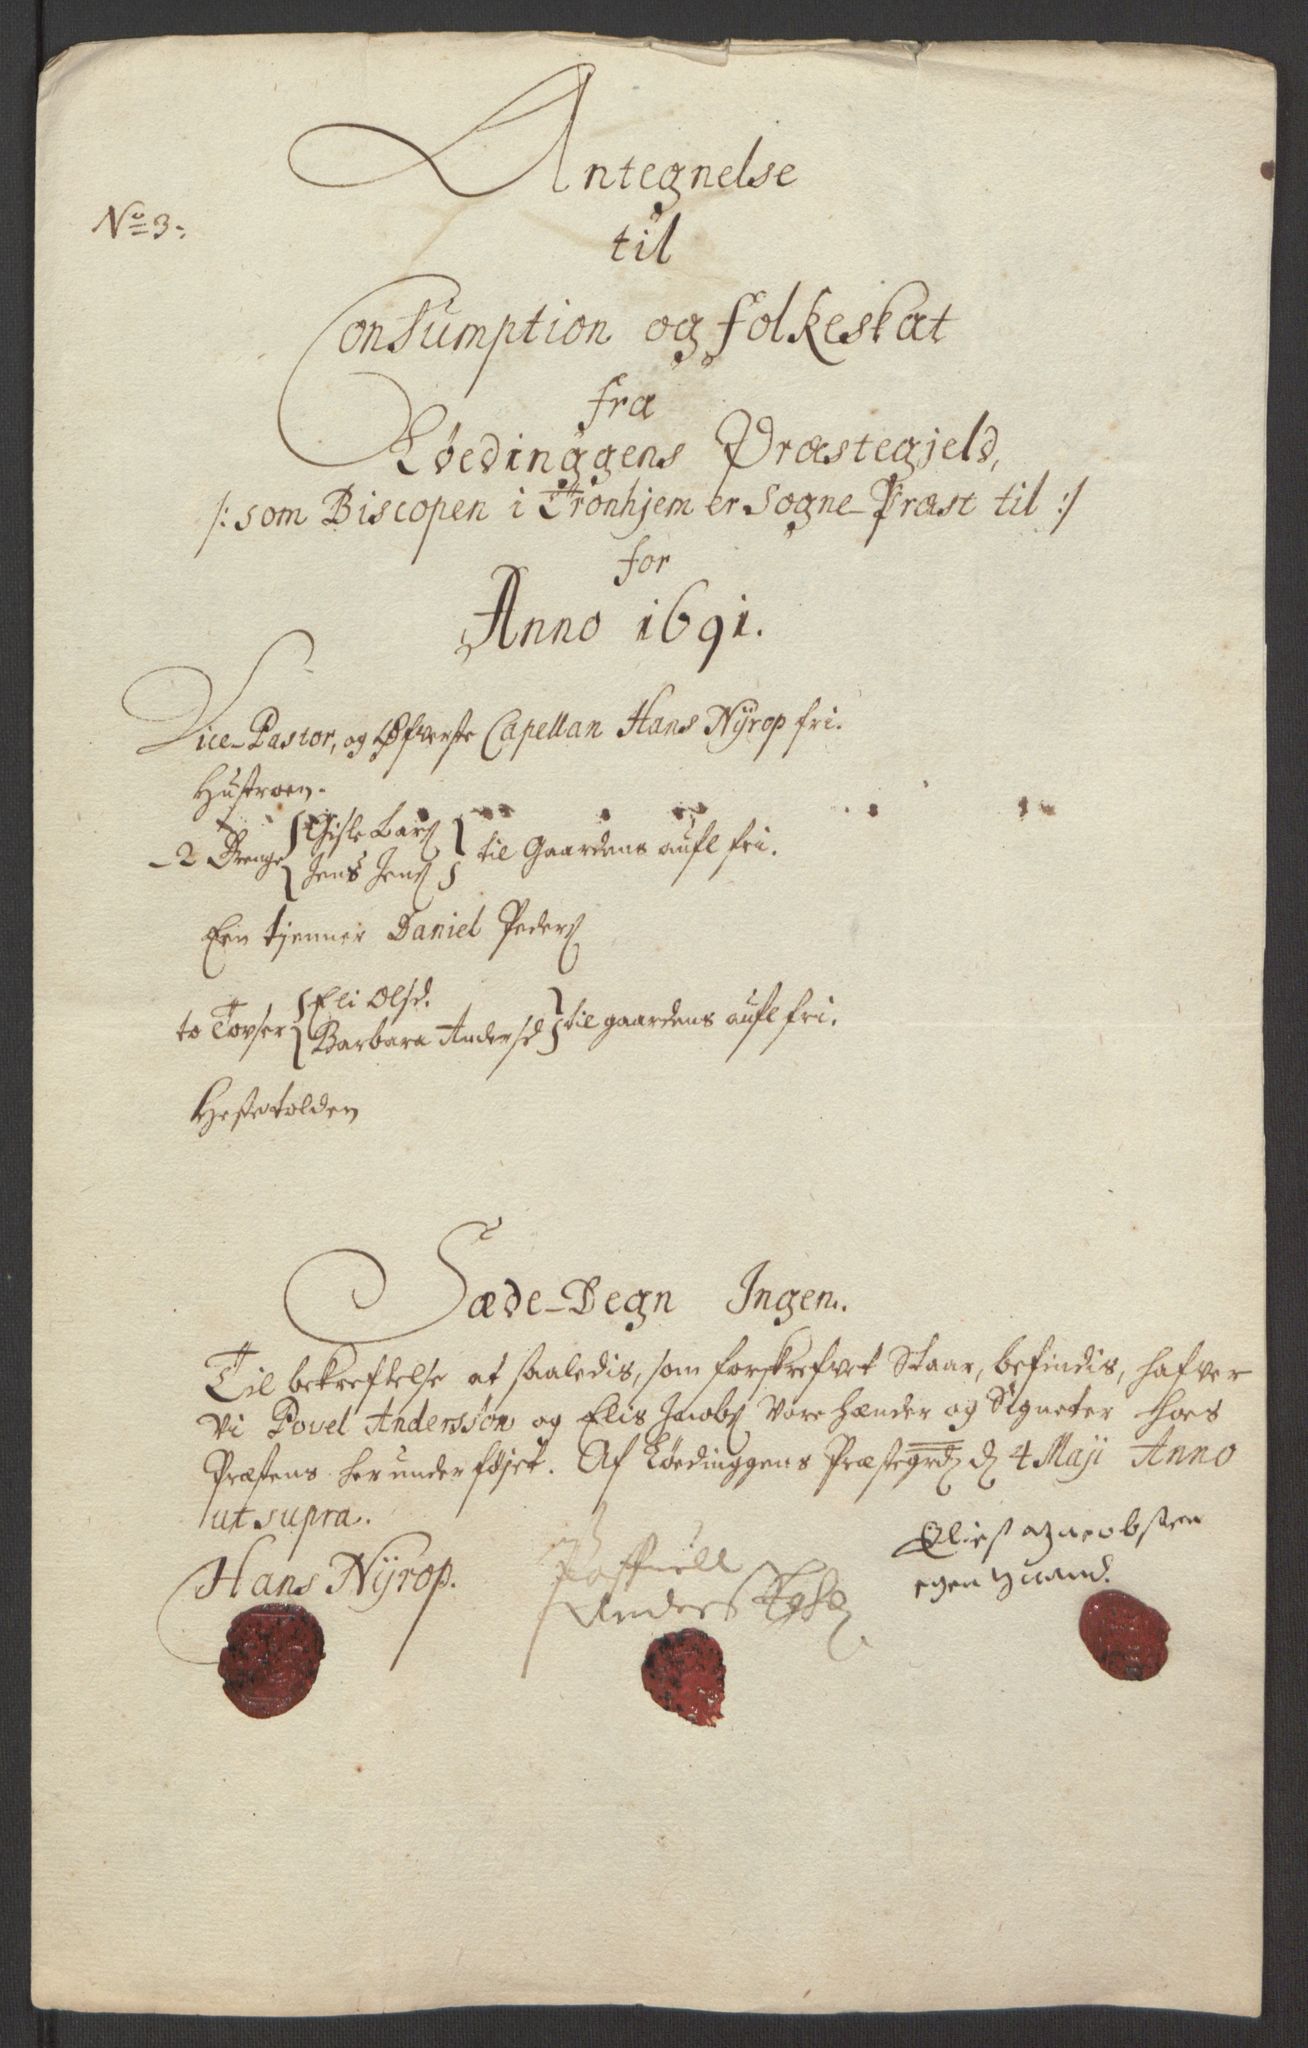 No 3.
Antegnelse
til
Consumption og folkeskat
fra
Løedinggens Præstegjeld,
/: som Biscopen i Tronhjem er Sogne-Præst til :/
for
Anno 1691.
Vice-Pastor, og Øfverste Capellan Hans Nÿrop fri.
Hustroen.
2 Drenge { Gisle Lars { til Gaardens aufl fri.
Jens Jens
Een tjenner Daniel Peders
to Tøvser { Eli Olsd. } til gaardens aufl fri.
Barbara Andersd
Hestetolden
Sæde-Degn Ingen.
Til bekreftelse at saaledis, som forskrefvet Staar, befindis, hafver
Vi Povel Andersson og Elis Jacobs Vore hænder og Signeter hoes
Præstens her under føjet. Af Løedinggens Præstegrd d 4 Maji Anno
ut supra.
Hans Nÿrop.
Anders
Elies Jacobsen
egen haand.